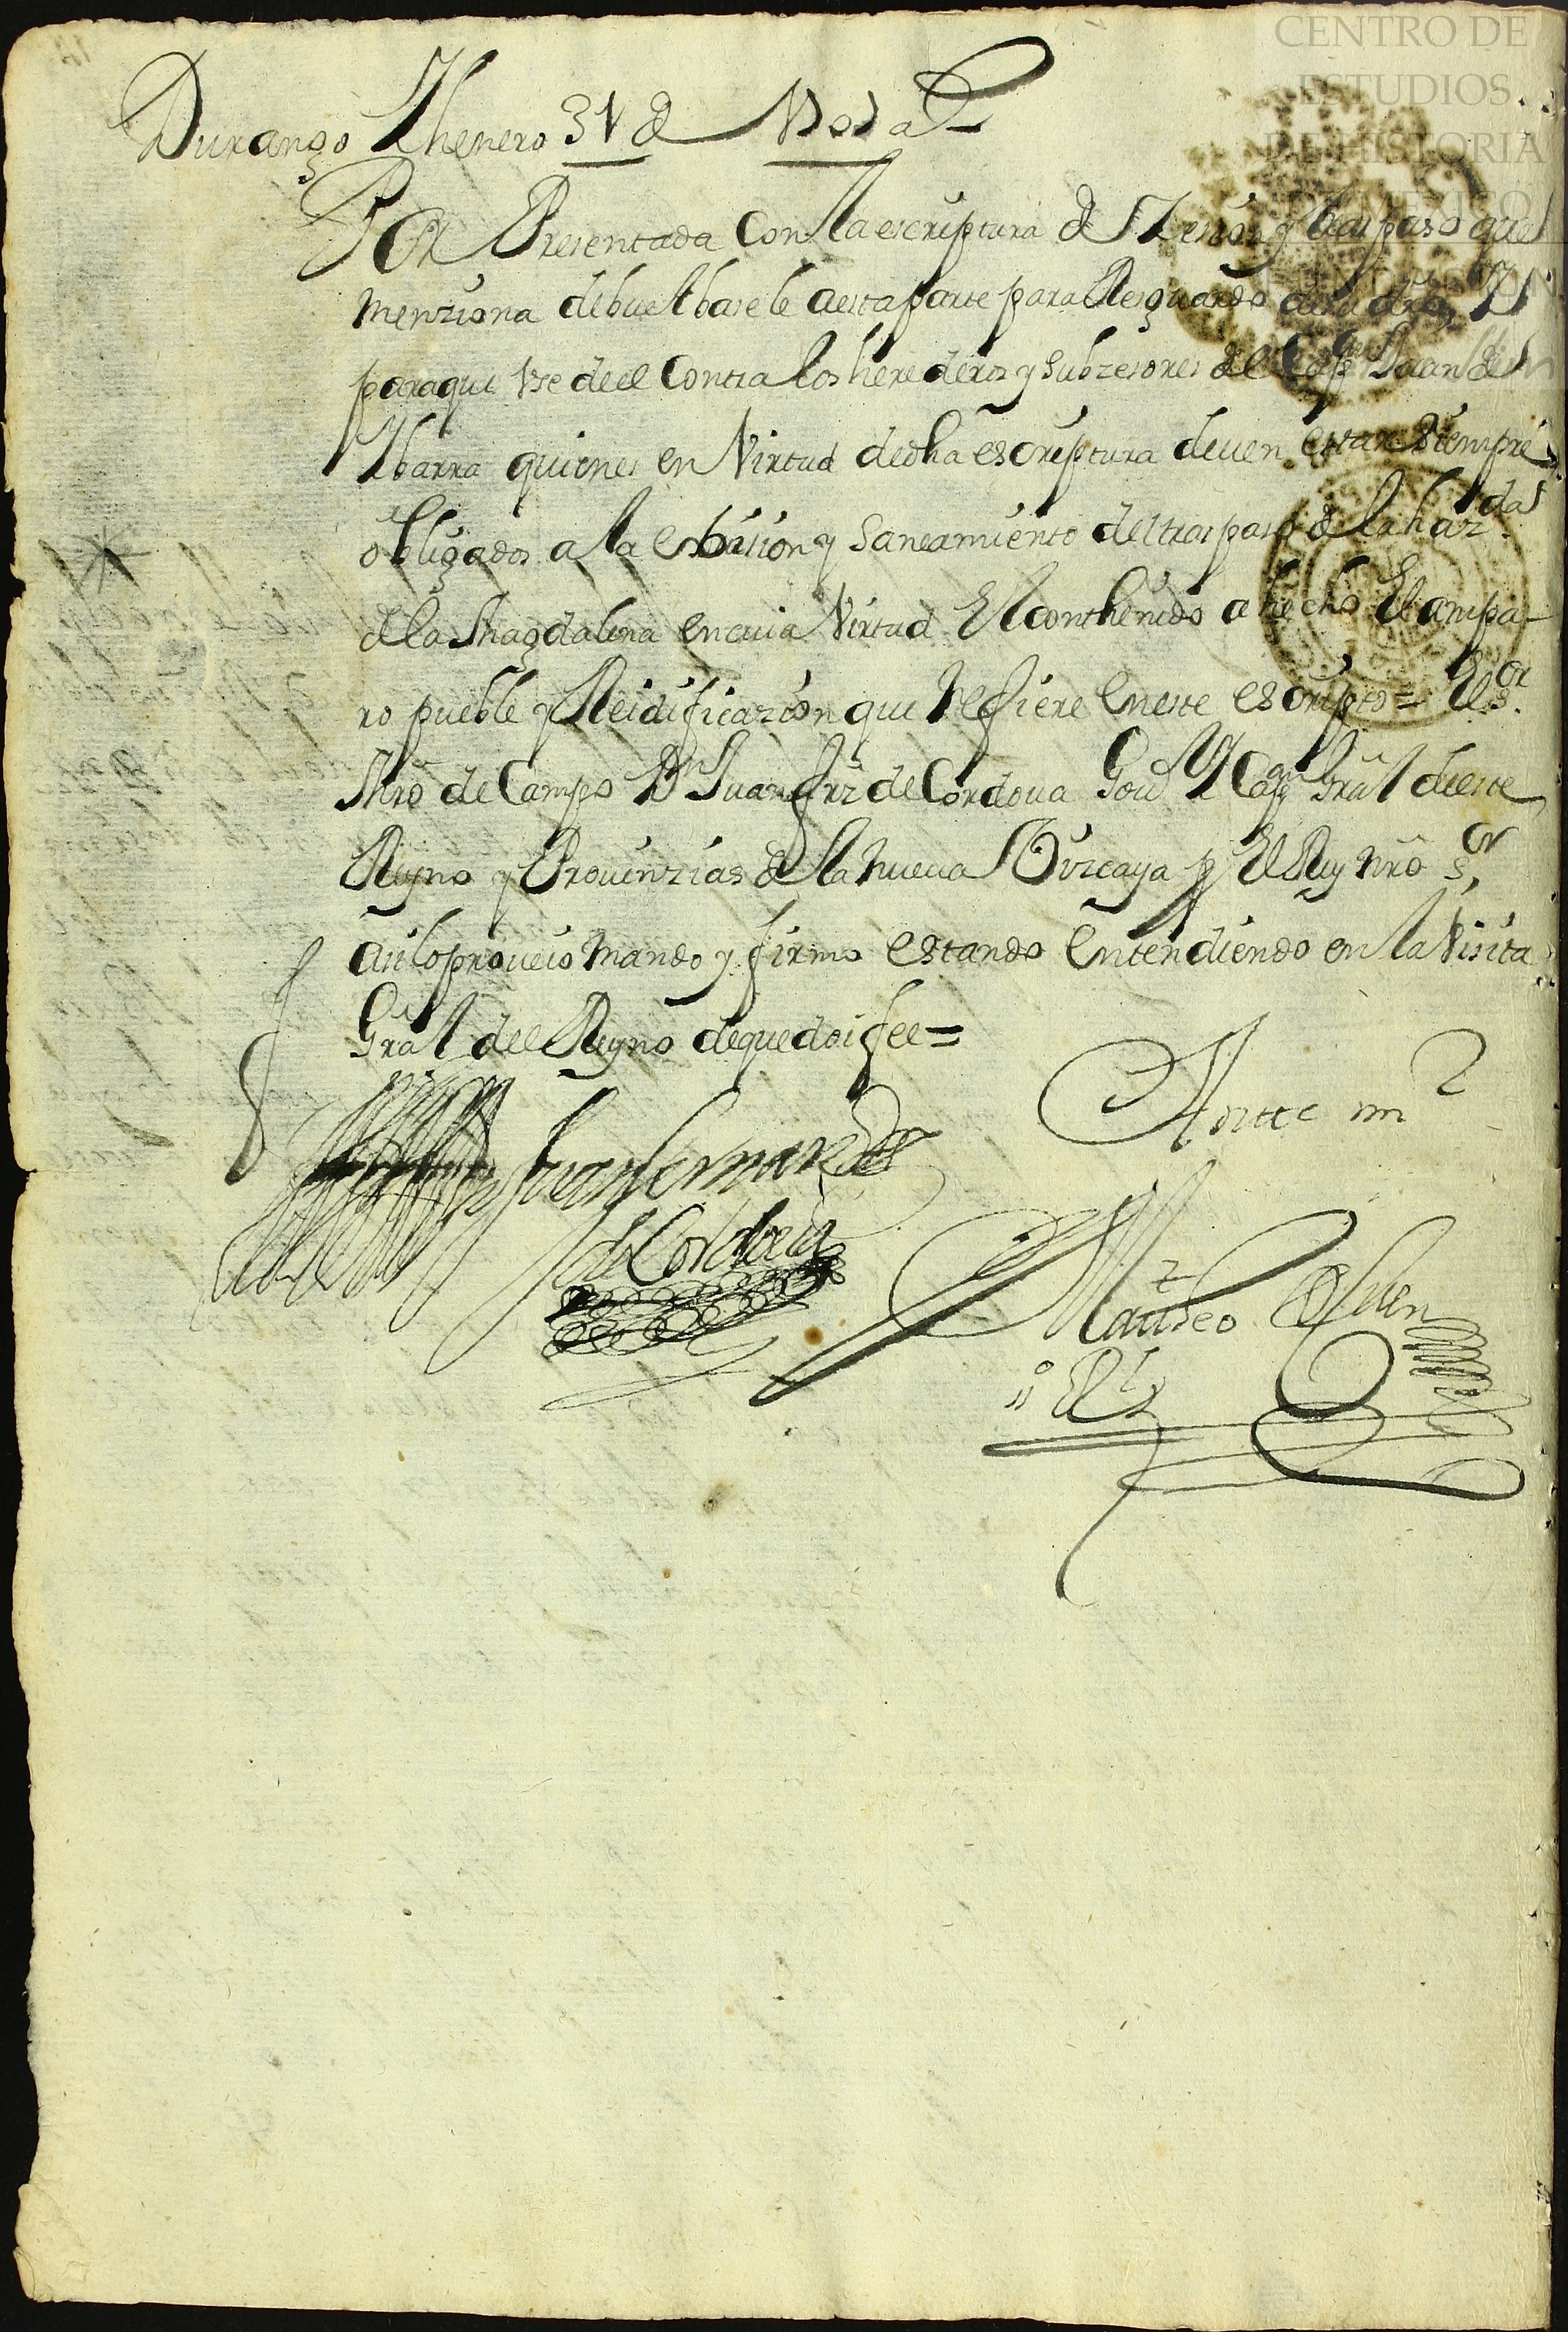 CENTRO DE
ESTUDIOS
DE HISTORIA
DE MEXICO
Durango Yhenero 31 de
Por Presentada Con la escriptura de Zesion y traspaso que
menziona debuelbasele aesta parte para Resguardo desu dro Y
paraque Vse deel Contra los herederos y Subzesores del Capn Juan de
Ybarra quienes en Virtud dedha escriptura deuen estar siempre
obligados a la evision y Saneamiento del traspaso de la hazda
de la Magdalena encuia Virtud El conthenido a hecho El ampa-
ro pueble y Reidificazion que Refiere eneste escripto = El Sor
Mro de Campo Dn Juan frz de Cordoua Gour Y Capn Gral deeste
Reyno y Prouinzias de la nueua Vizcaya pr El Rey nro Sor
asi lo proueio mando y firmo estando entendiendo en la Visita
Gral deel Reyno dequedoi fee =
Juan fernandez
de Cordoua
Antte mi
Matheo